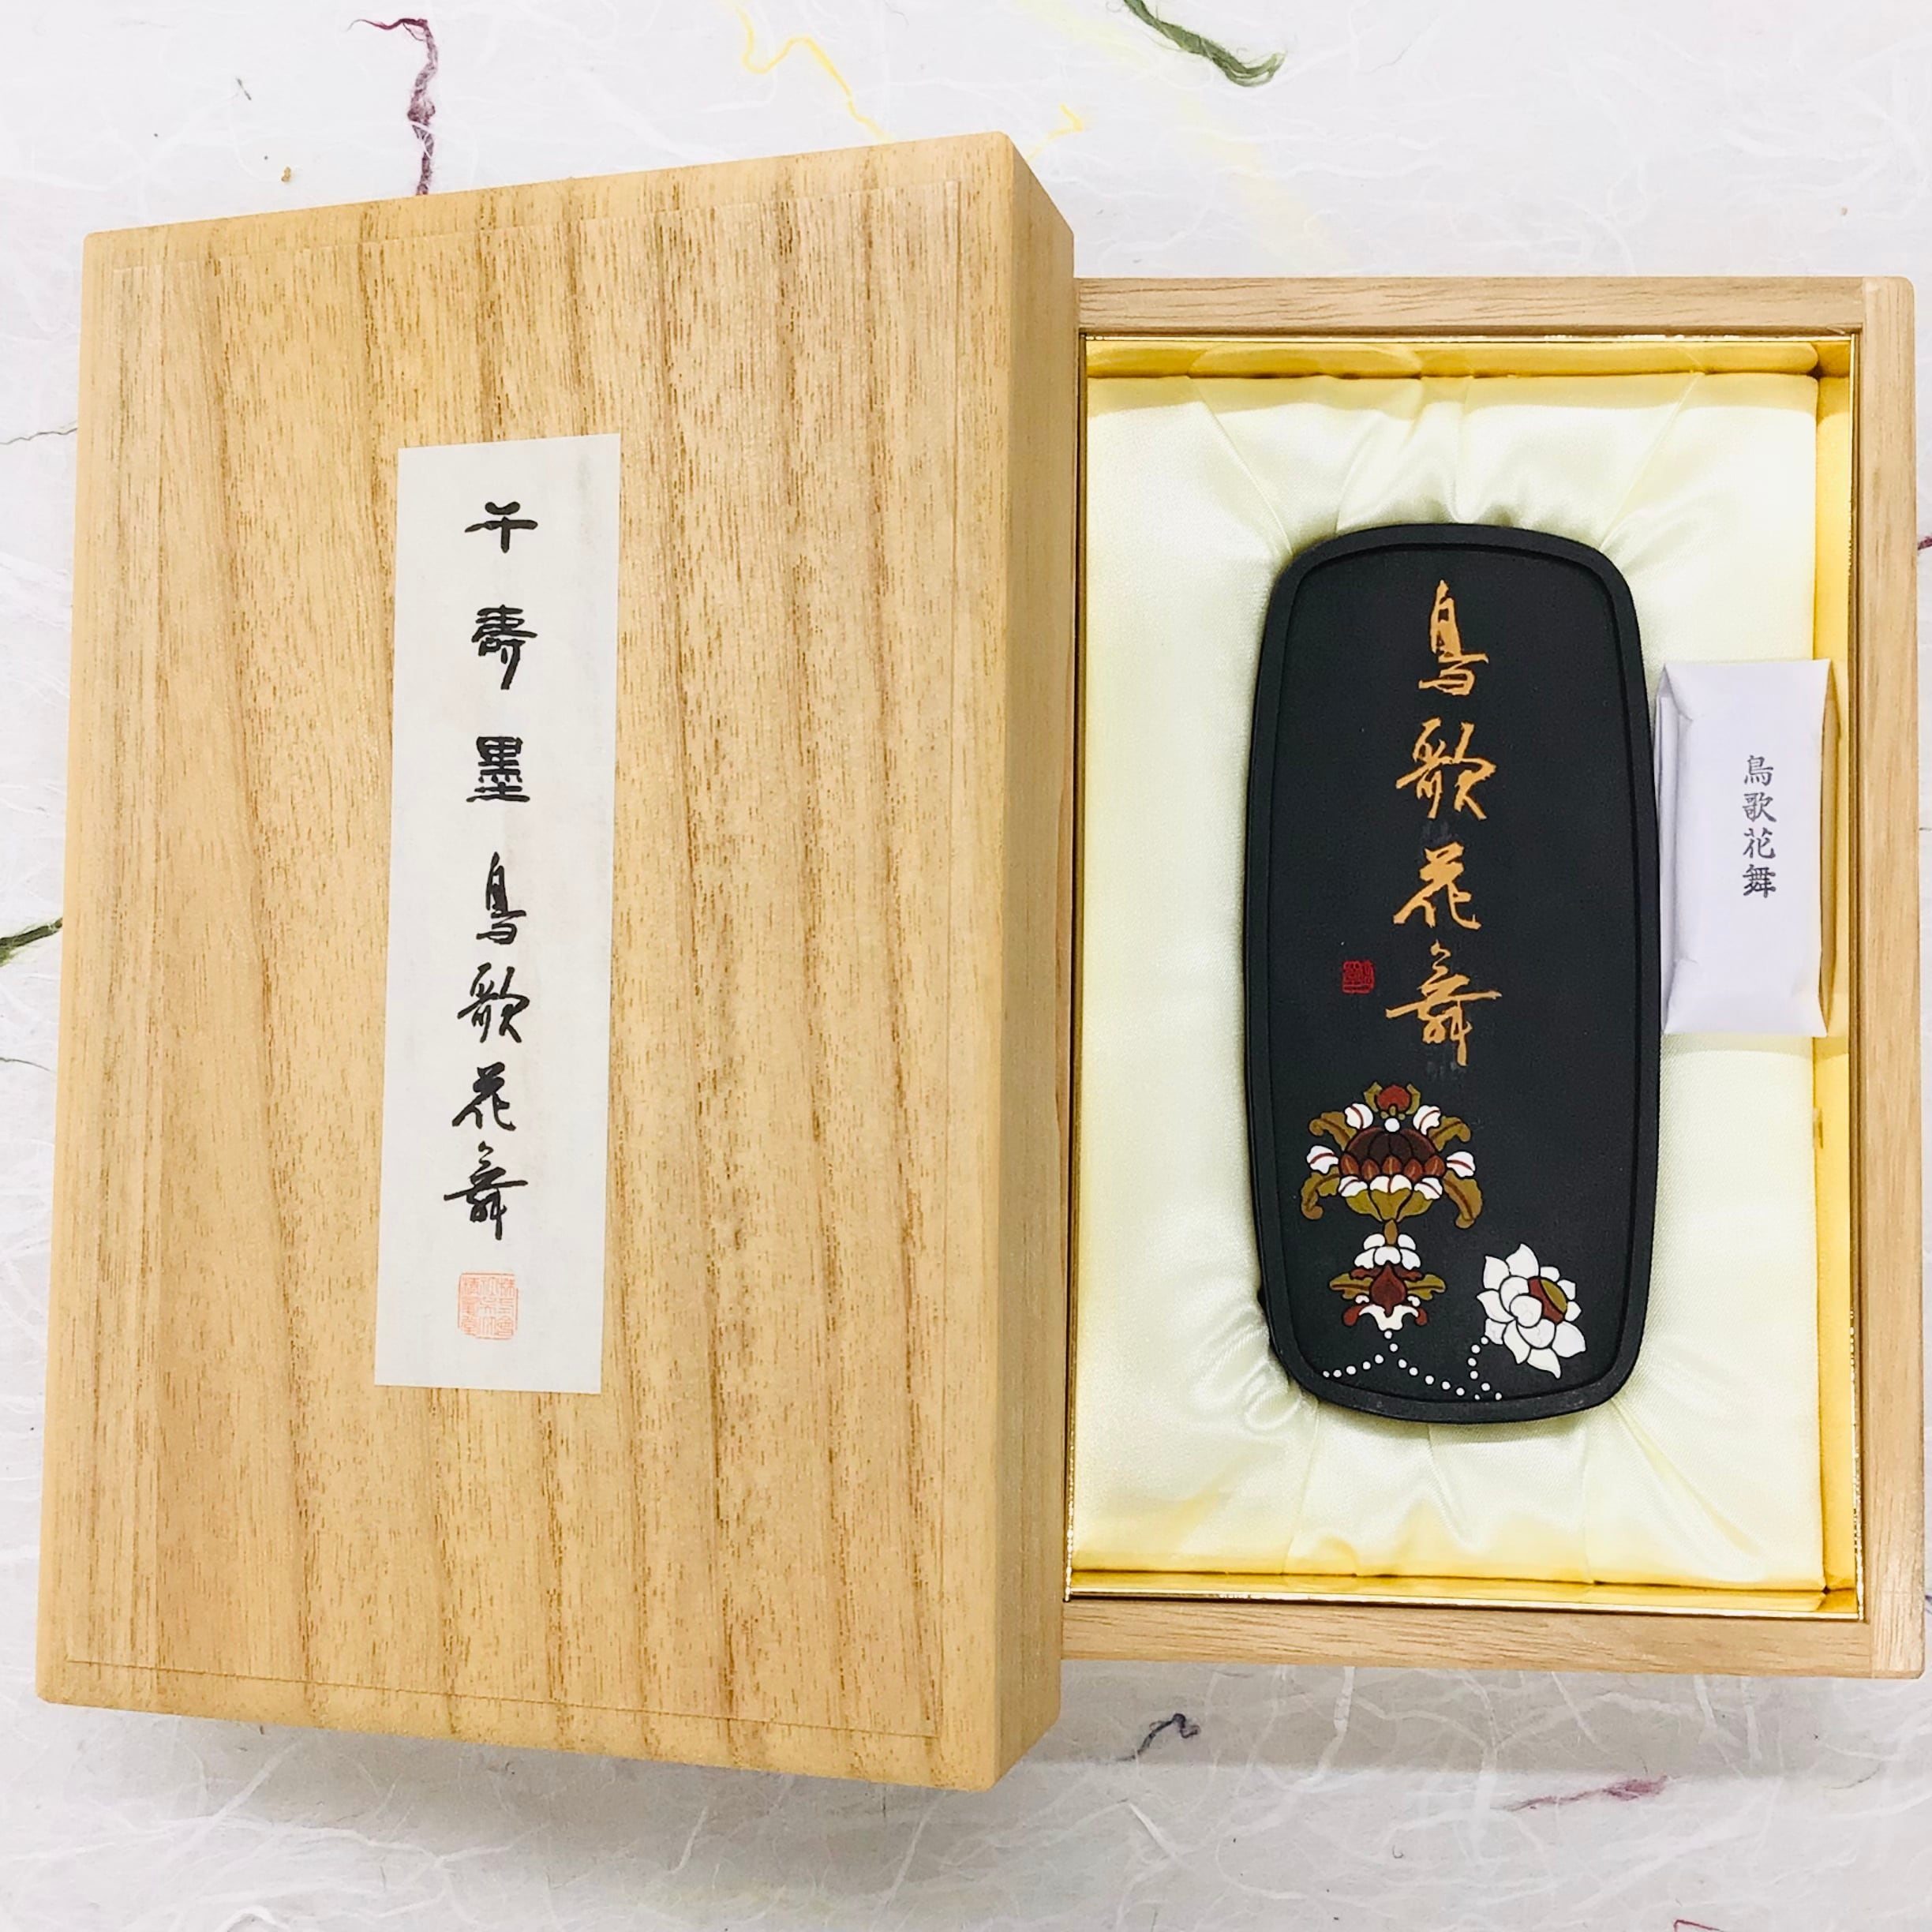 千壽墨 鳥歌花舞
鳥歌花舞
鳥歌花舞